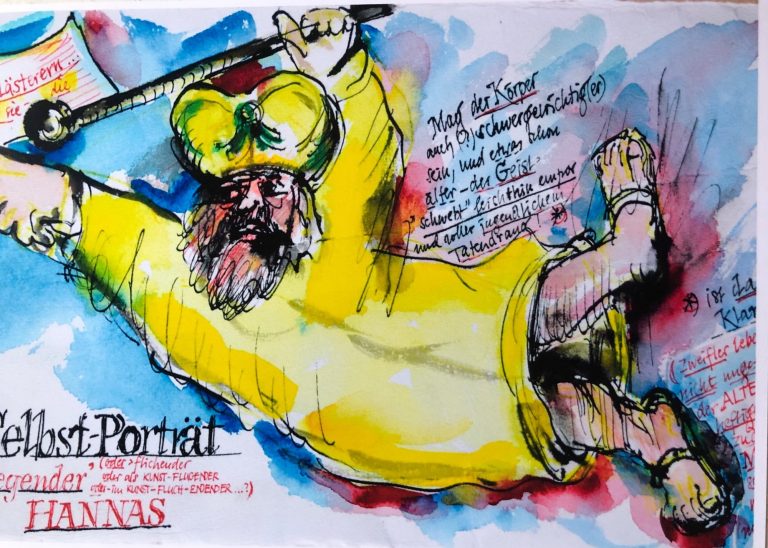 lästern...
sie die
Mag der Körper
auch (!) schwergewichtig(er)
sein, und etwas schon
älter - der Geist
"schwebt" leichthin empor
und voller jugendlichem
Tatendrang! *)
*) ist da
Klar
(Zweifler
nicht
der ALTE
Selbst-Porträt
egender" (oder » flichender
oder als KUNST-FLUGENDER
oder - im KUNST-FLUCH-ENDENDER...?)
HANNAS